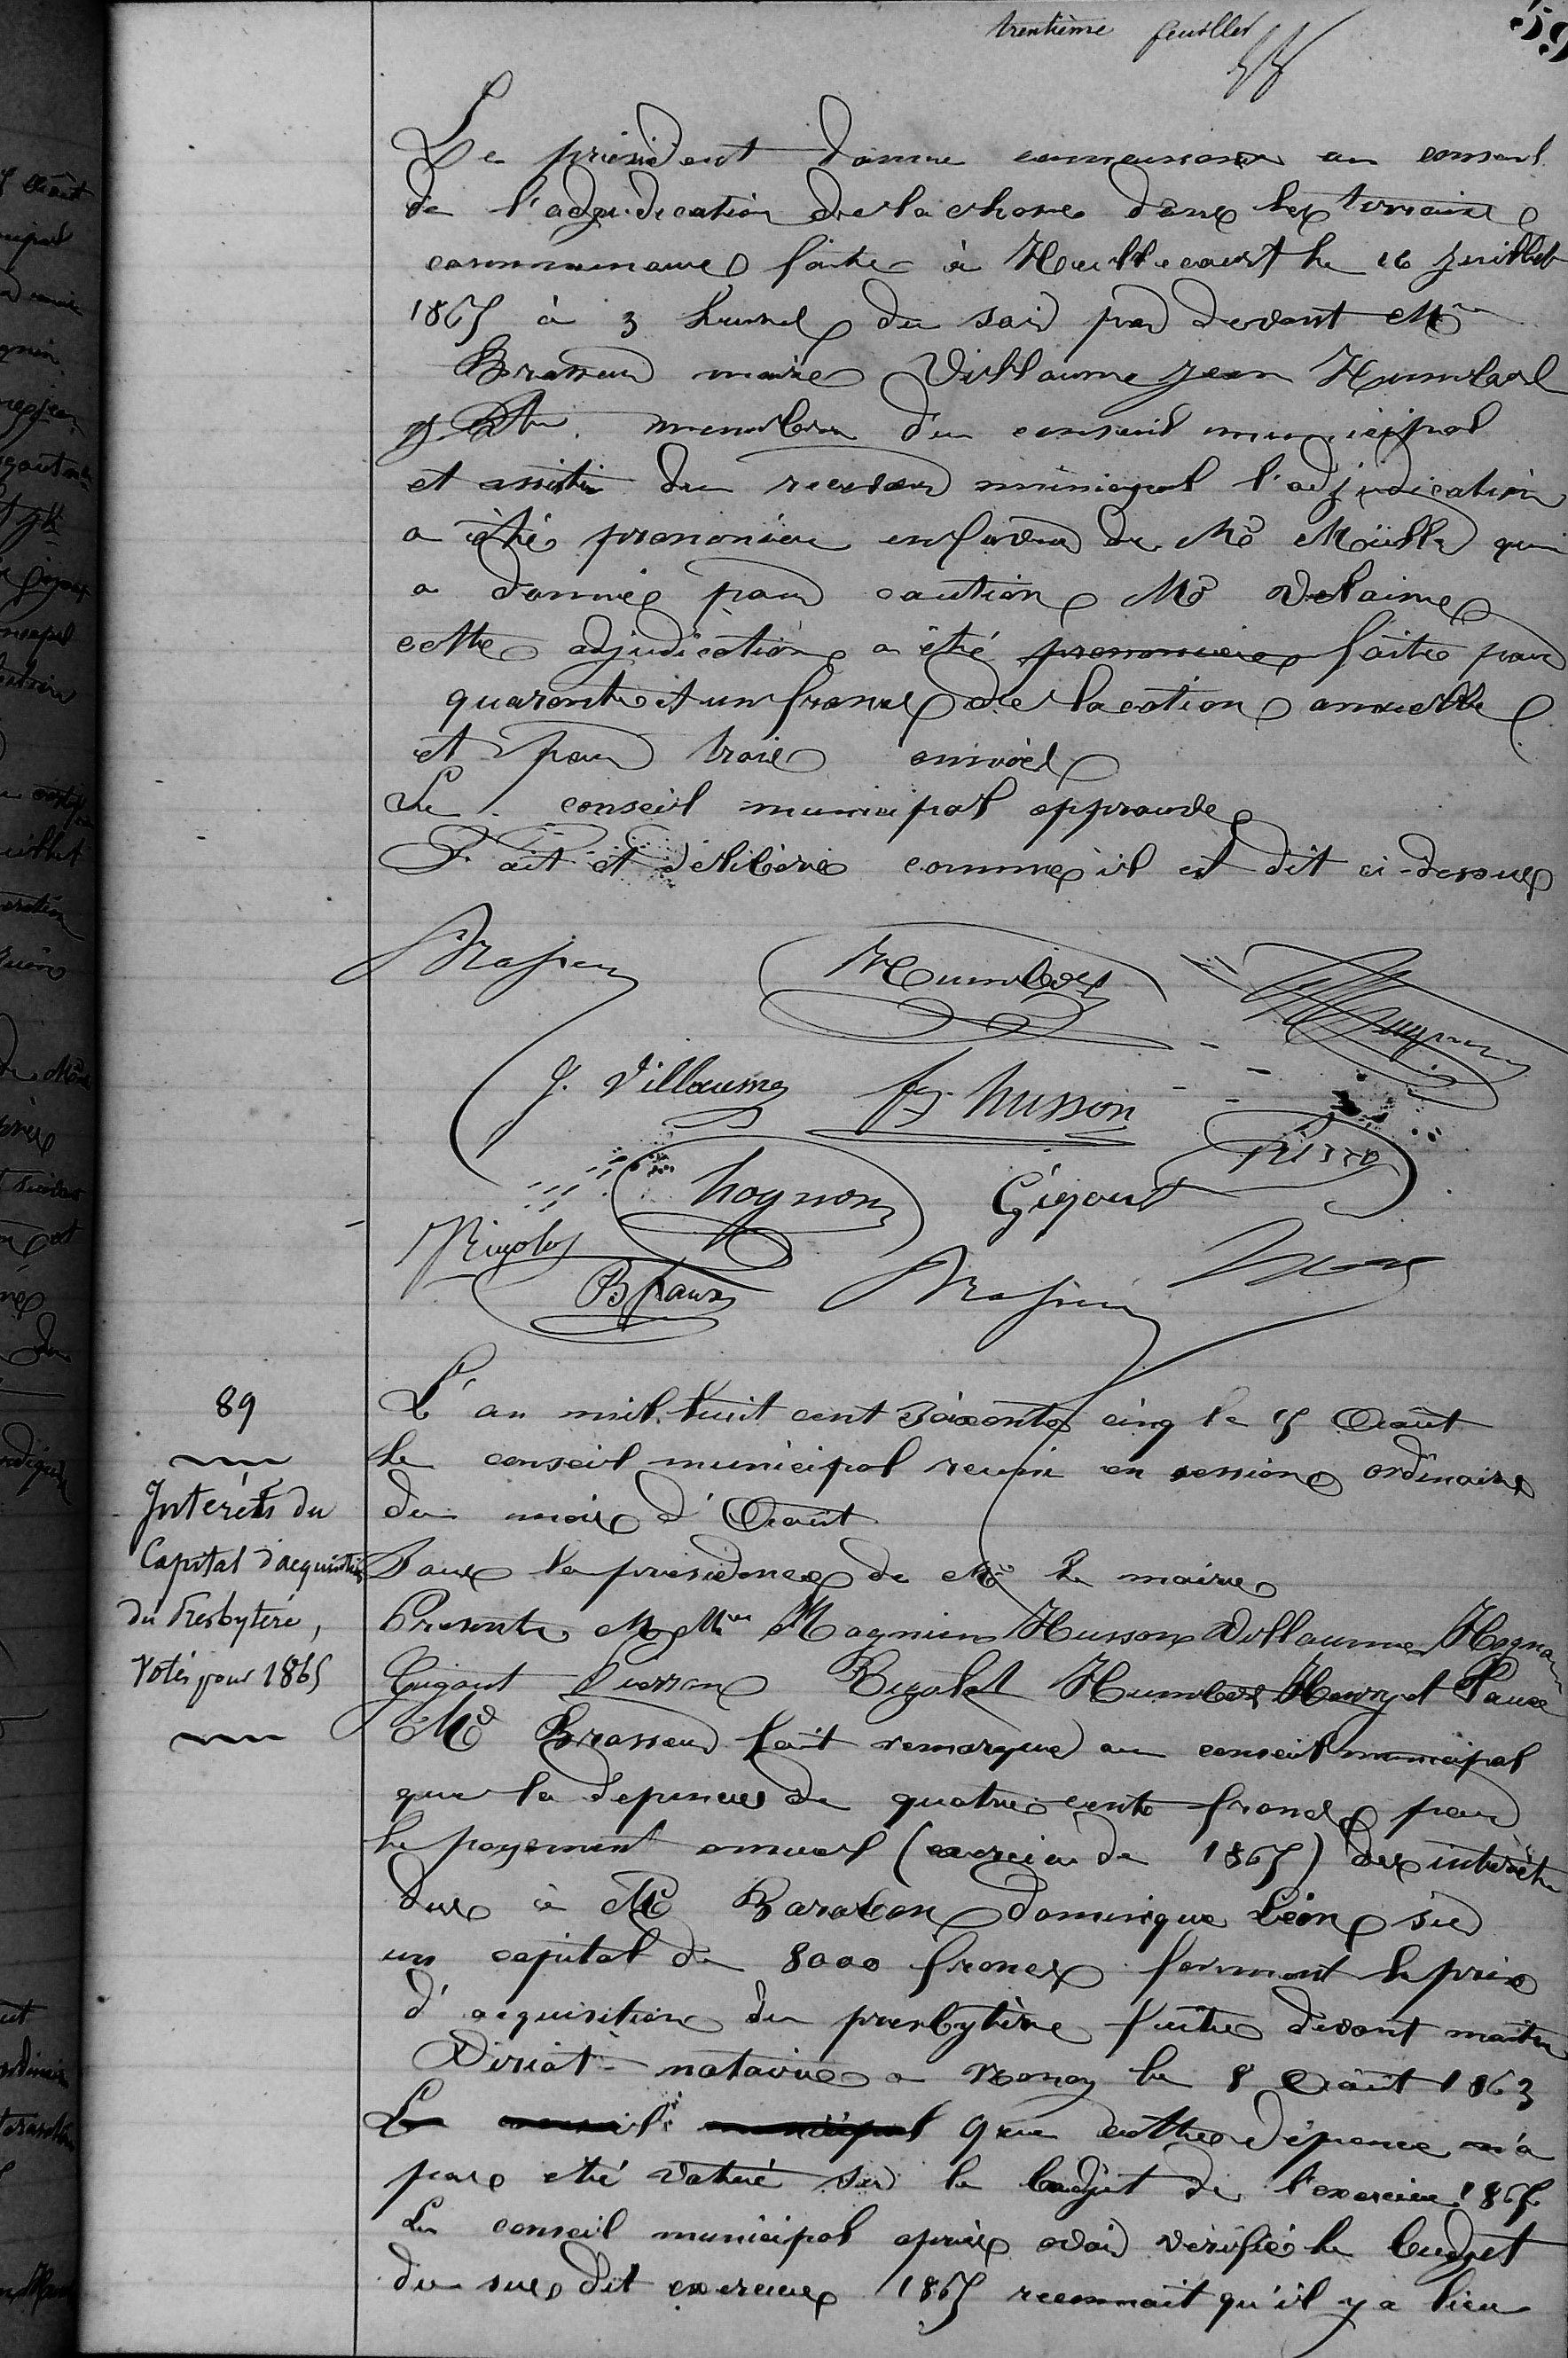 trentième feuillet
59
Le président donne connaissance au conseil
de l'adjudication de la chasse dans les terrains
communaux faite à Heillecourt le 16 juillet
1865 à 3 heures du soir par devant Mr
Brasseur maire Villaume Jean Humbert
membres du conseil municipal
et assistés du receveur municipal l'adjudication
a été prononcée en faveur de Mr Müller qui
a donné pour caution Mr Delaime
cette adjudication a été prononcée faite pour
quarante et un francs de location annuelle
et pour trois années
Le conseil municipal approuve
Fait et délibéré comme il est dit ci-dessus
Brasseur Humbert Magnien
J. Villaume Husson
hognon Gigout Pierron
Bigolet
B Paux Brasseur
89
Intérêts du
Capital d'acquisition
du Presbytère,
Votés pour 1865
L'an mil huit cent soixante cinq le 15 Août
le conseil municipal reuni en session ordinaire
du mois d'Août
Sous la présidence de Mr le maire
Presents M Mrs Magnien Husson Villaume Hognon
Gigout Pierron Bigolet Humbert Henry et Paux
Mr Brasseur fait remarquer au conseil municipal
que la dépense de quatre cents francs pour
le payement annuel (exercice de 1865) des intérêts
dus à Mr Barabon dominique Léon sur
un capital de 8000 francs formant le prix
d'acquisition du presbytère faite devant maitre
Viriot notaire a Nancy le 8 Août 1863
Le conseil municipal que cette dépense n'a
pas eté votée sur le budjet de l'exercice 1865
Le conseil municipal après avoir vérifié le budget
du sus dit exercice 1865 reconnait qu'il y a lieu